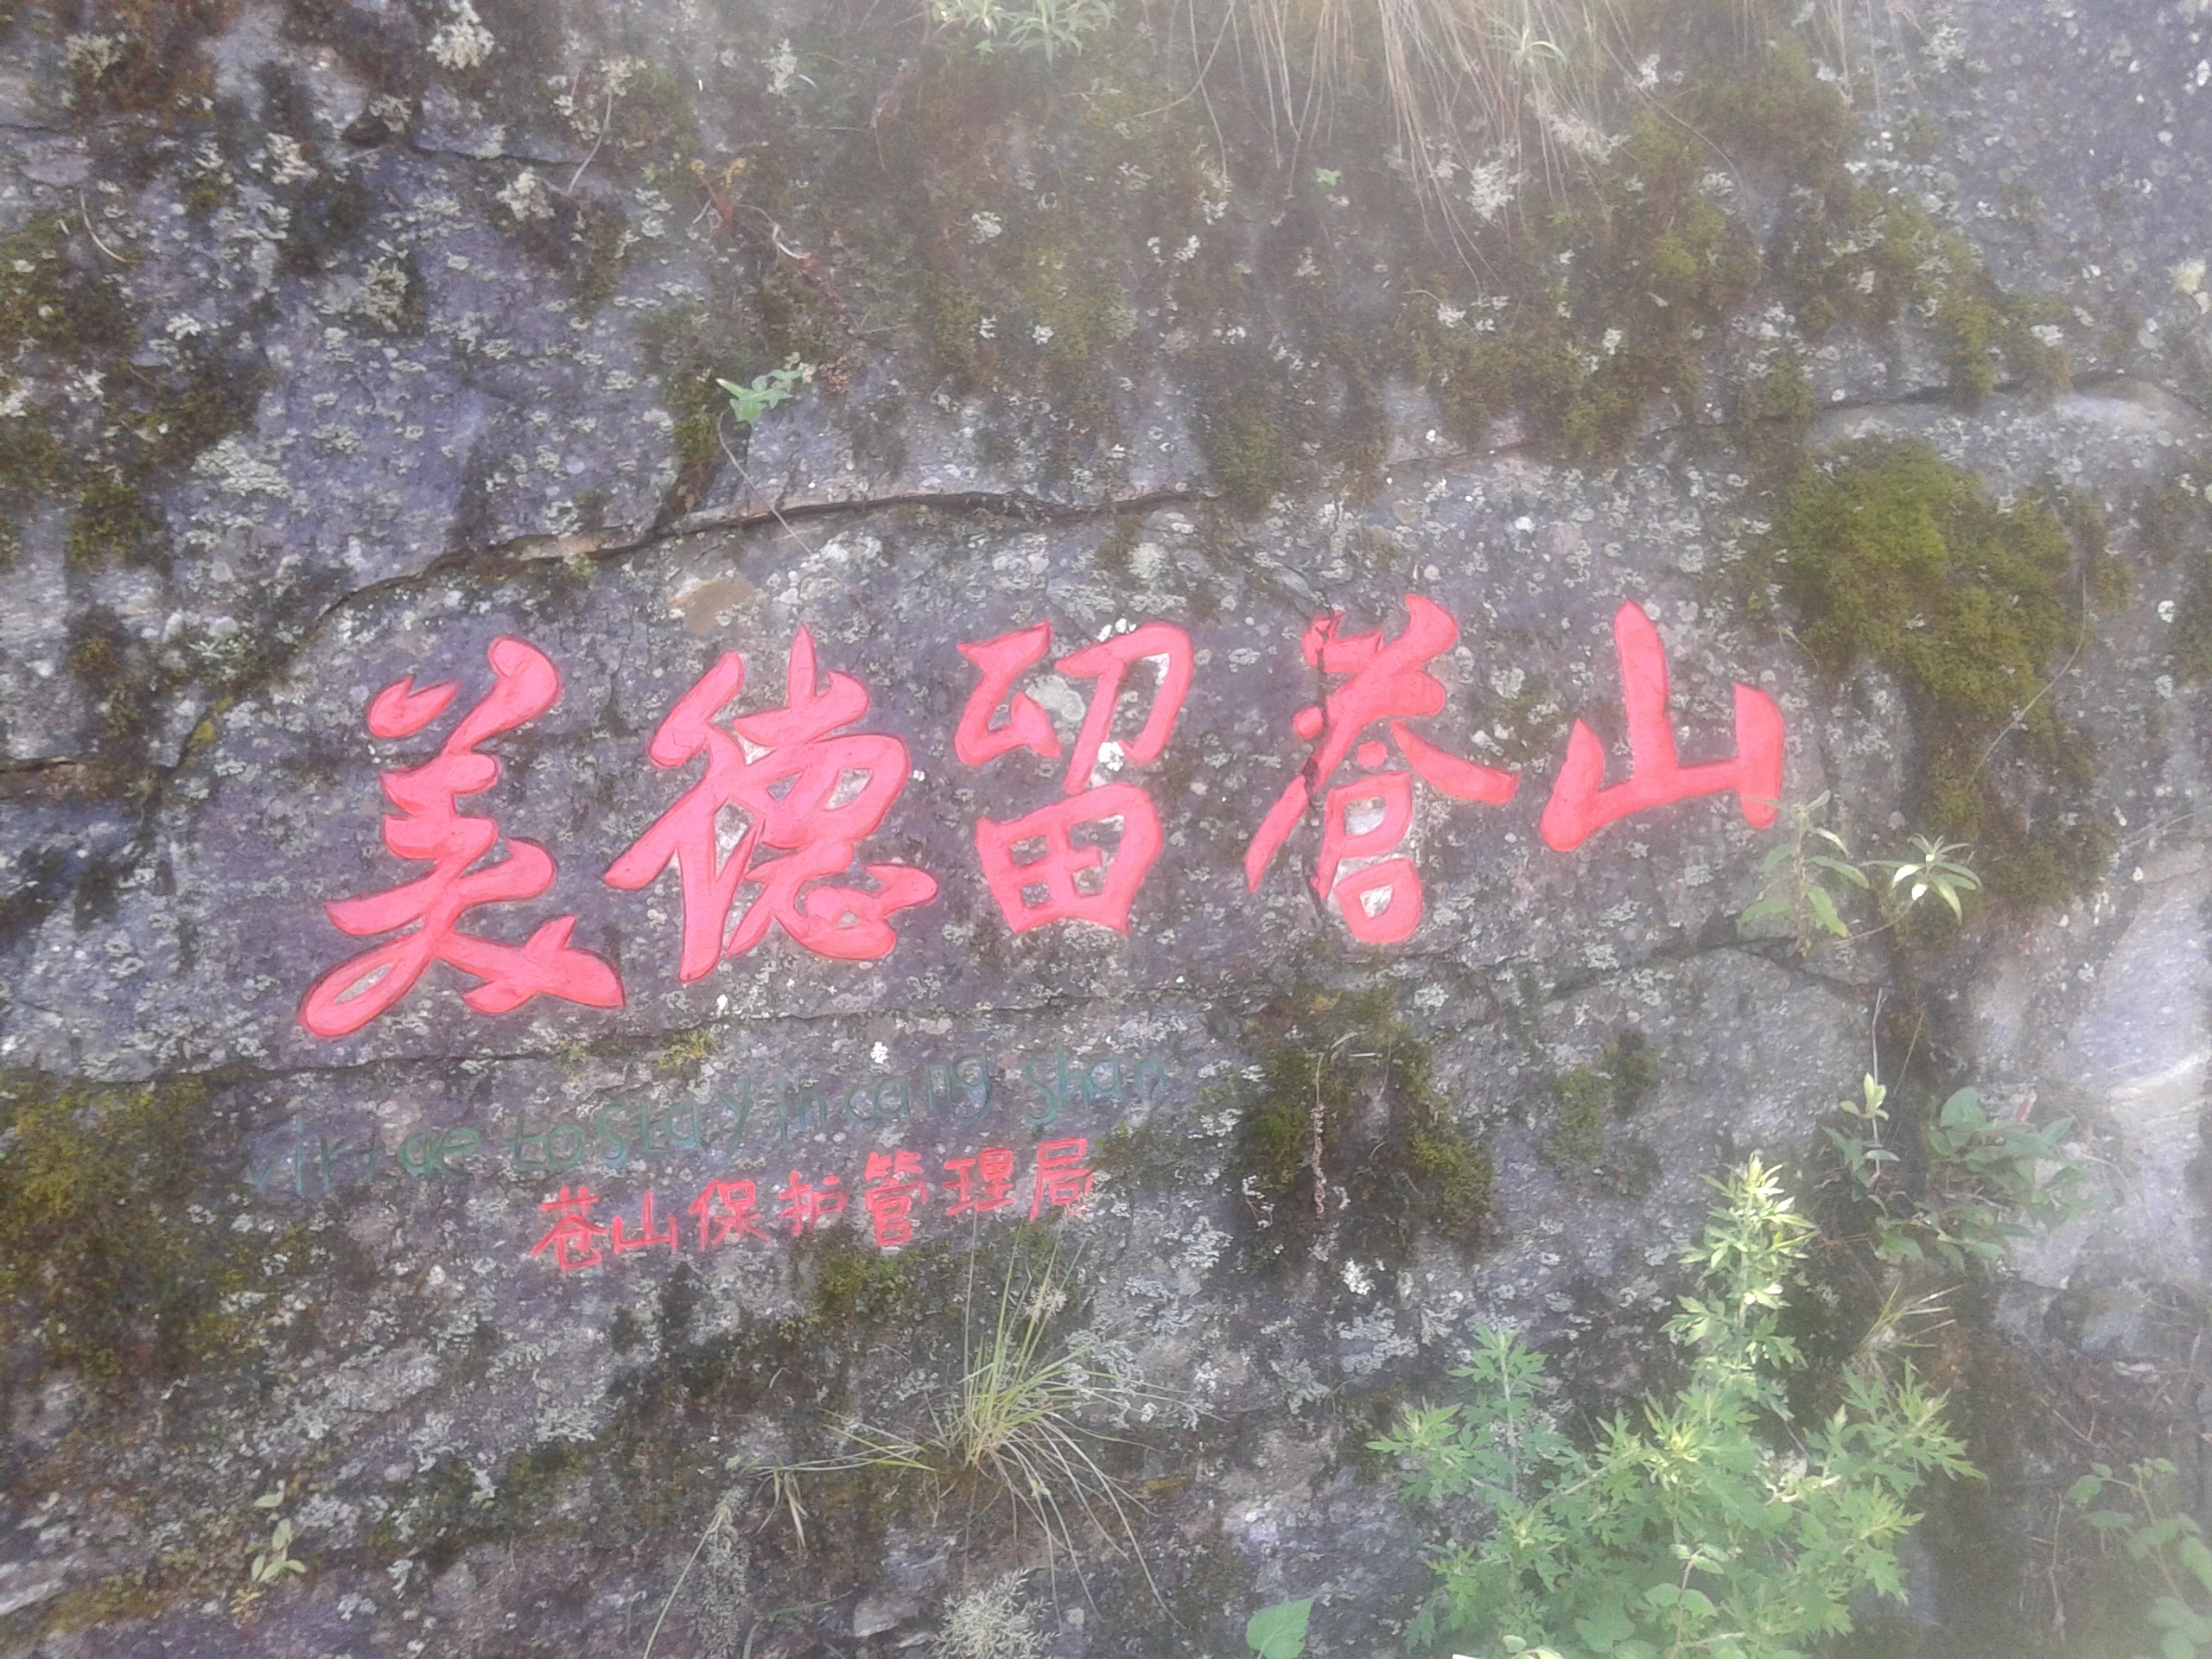 美德留蒼山
virtae to stay in cang shan
苍山保护管理局